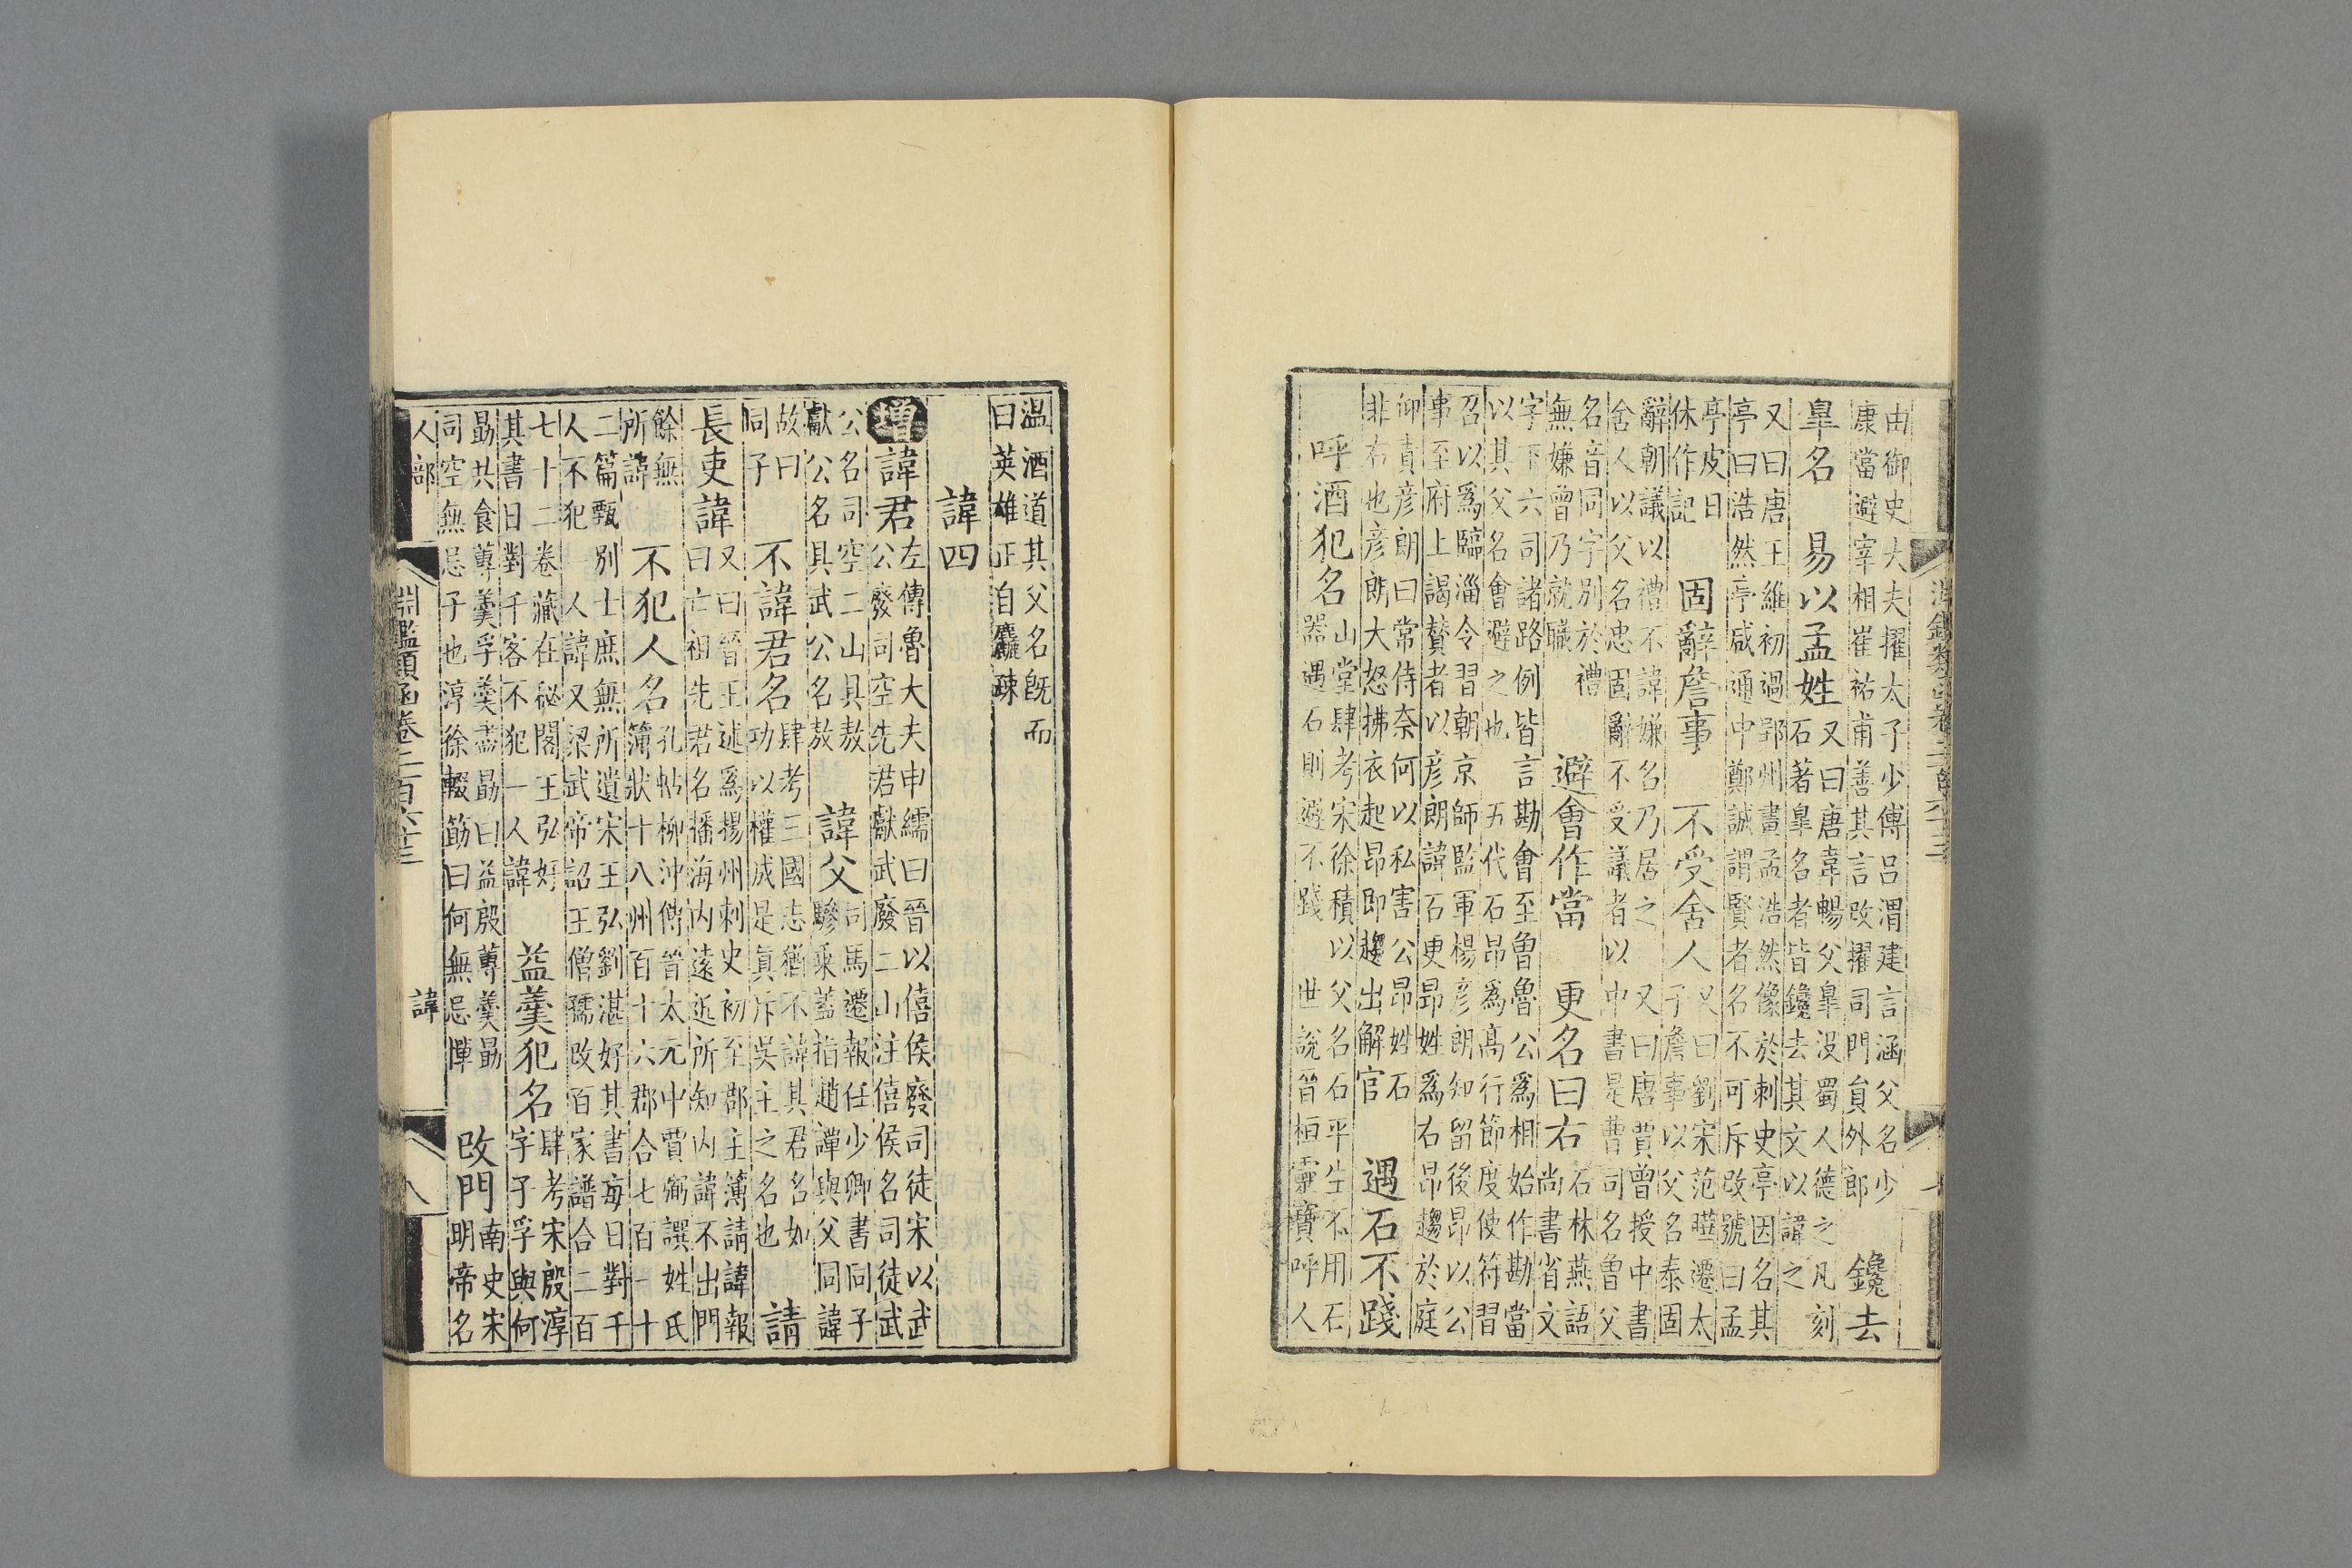 由御史大夫擢太子少傅呂渭建言涵父名少
康當避宰相崔祐甫善其言改擢司門員外郎
鑱去
皐名　易以孟姓
又曰唐韋暢父皐没蜀人德之凡刻
石著皐名者皆鑱去其文以諱之
又曰唐王維初過郢州畫孟浩然像於刺史亭因名其
亭曰浩然亭咸通中鄭諴謂賢者名不可斥改號曰孟
亭皮日
休作記
固辭詹事　不受舍人
又曰劉宋范曄遷太
子詹事以父名泰固
辭朝議以禮不諱嫌名乃居之　又曰唐賈曾授中書
舍人以父名忠固辭不受議者以中書是曹司名魯父
名音同字別於禮
無嫌曾乃就職
避會作當　更名曰右
石林燕語
尚書省文
字下六司諸路例皆言勘會至魯魯公爲相始作勘當
以其父名會避之也　五代石昂爲高行節度使符習
召以爲臨淄令習朝京師監軍楊彥朗知留後昂以公
事至府上謁贊者以彥朗諱石更昂姓爲右昂趨於庭
仰責彥朗曰常侍奈何以私害公昂姓石
非右也彥朗大怒拂衣起昂即趨出解官
遇石不踐
呼酒犯名
山堂肆考宋徐積以父名石平生不用石
器遇石則避不踐　世說晉桓靈寶呼人
温酒道其父名旣而
曰英雄正自麤疎
諱四
增諱君
左傳魯大夫申繻曰晉以僖侯廢司徒宋以武
公廢司空先君獻武廢二山注僖侯名司徒武
公名司空二山具敖
獻公名具武公名敖
諱父
司馬遷報任少卿書同子
驂乘蓋指趙譚與父同諱
故曰
同子
不諱君名
肆考三國志猶不諱其君名如
功以權成是真斥吳主之名也
請
長吏諱
又曰晉王述爲揚州刺史初至郡主簿請諱報
曰亡祖先君名播海内遠近所知内諱不出門
餘無
所諱
不犯人名
孔帖柳沖傳晉太元中賈弼譔姓氏
簿狀十八州百十六郡合七百一十
二篇甄別士庶無所遺宋王弘劉湛好其書每日對千
人不犯一人諱又梁武帝詔王僧孺改百家譜合二百
七十二卷藏在秘閣王弘好
其書日對千客不犯一人諱
益羹犯名
肆考宋殷淳
字子孚與何
勗共食蓴羹孚羹盡勗曰益殷蓴羹勗
司空無忌子也淳徐輟筯曰何無忌憚
改門
南史宋
明帝名
人部　諱
淵鑑類函卷二百六十三　八